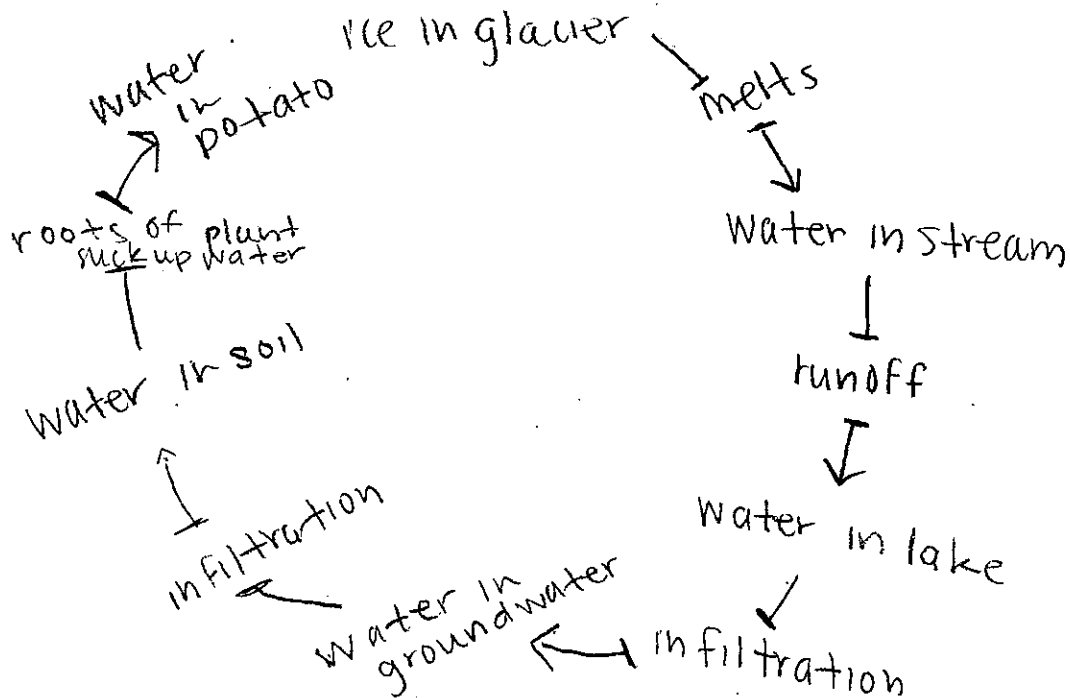 ice in glacier
melts
water in stream
runoff
water in lake
infiltration
water in
groundwater
infiltration
water in soil
roots of plant
suck up water
water
in
potato